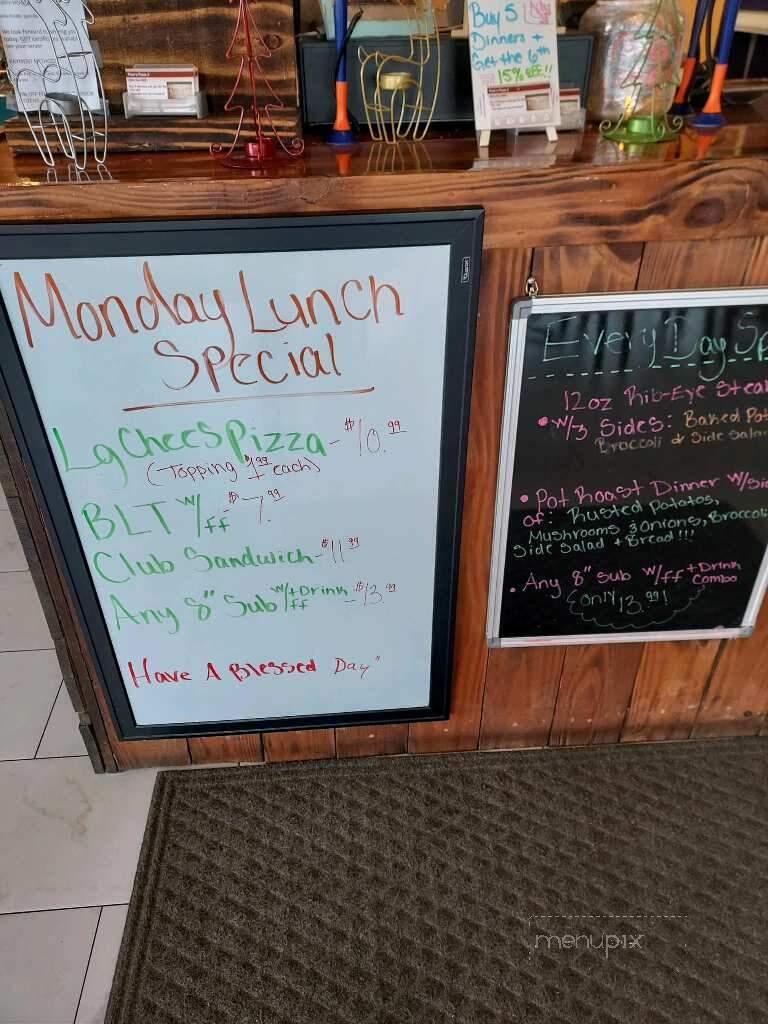 Buy 5
Dinners +
Get the 6th
15% OFF!!
Monday Lunch
Special
Lg Chees Pizza - $10.99
(Topping 1.99 each)
BLT w/ff - $7.99
Club Sandwich - $11.99
Any 8" Sub w/ff + Drink - $13.99
Have A Blessed Day"
Every Day Sp
12 oz Rib-Eye Steak
• w/3 Sides: Baked Pot
Broccoli & Side Sala
• Pot Roast Dinner w/Si
of: Rusted Potatos,
Mushrooms & Onions, Broccoli
Side Salad + Bread!!!
• Any 8" Sub w/ff + Drink Combo
Only 13.99!
menupix